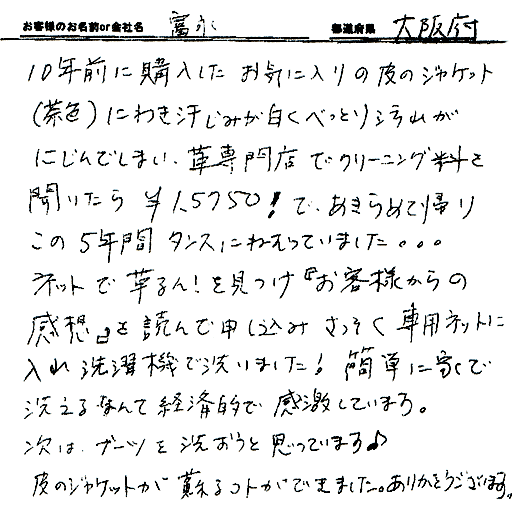 お客様のお名前or会社名 富永 都道府県 大阪府
10年前に購入した お気に入りの皮のジャケット
(茶色)にわき汗じみが白くべっとり
にじんでしまい、革専門店でクリーニング料を
聞いたら ¥1,5750!で、あきらめて帰り
この5年間 タンスにねむっていました...
ネットで革るん!を見つけ『お客様からの
感想』を読んで申し込み さっそく 専用ネットに
入れ 洗濯機で洗いました! 簡単に家で
洗えるなんて 経済的で 感激しています。
次は、ブーツを洗おうと思っています♪
皮のジャケットが 蘇るコトができました。ありがとうございます。